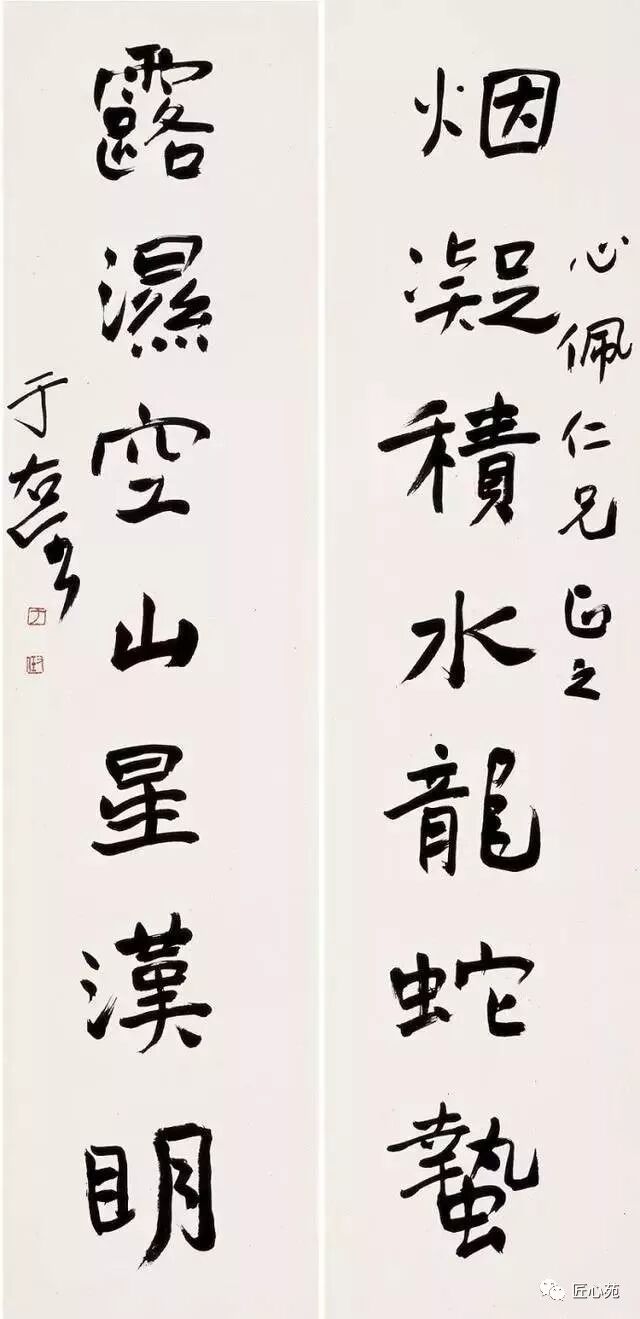 心佩仁兄正之
烟凝積水龍蛇蟄
露濕空山星漢明
于右任
匠心苑